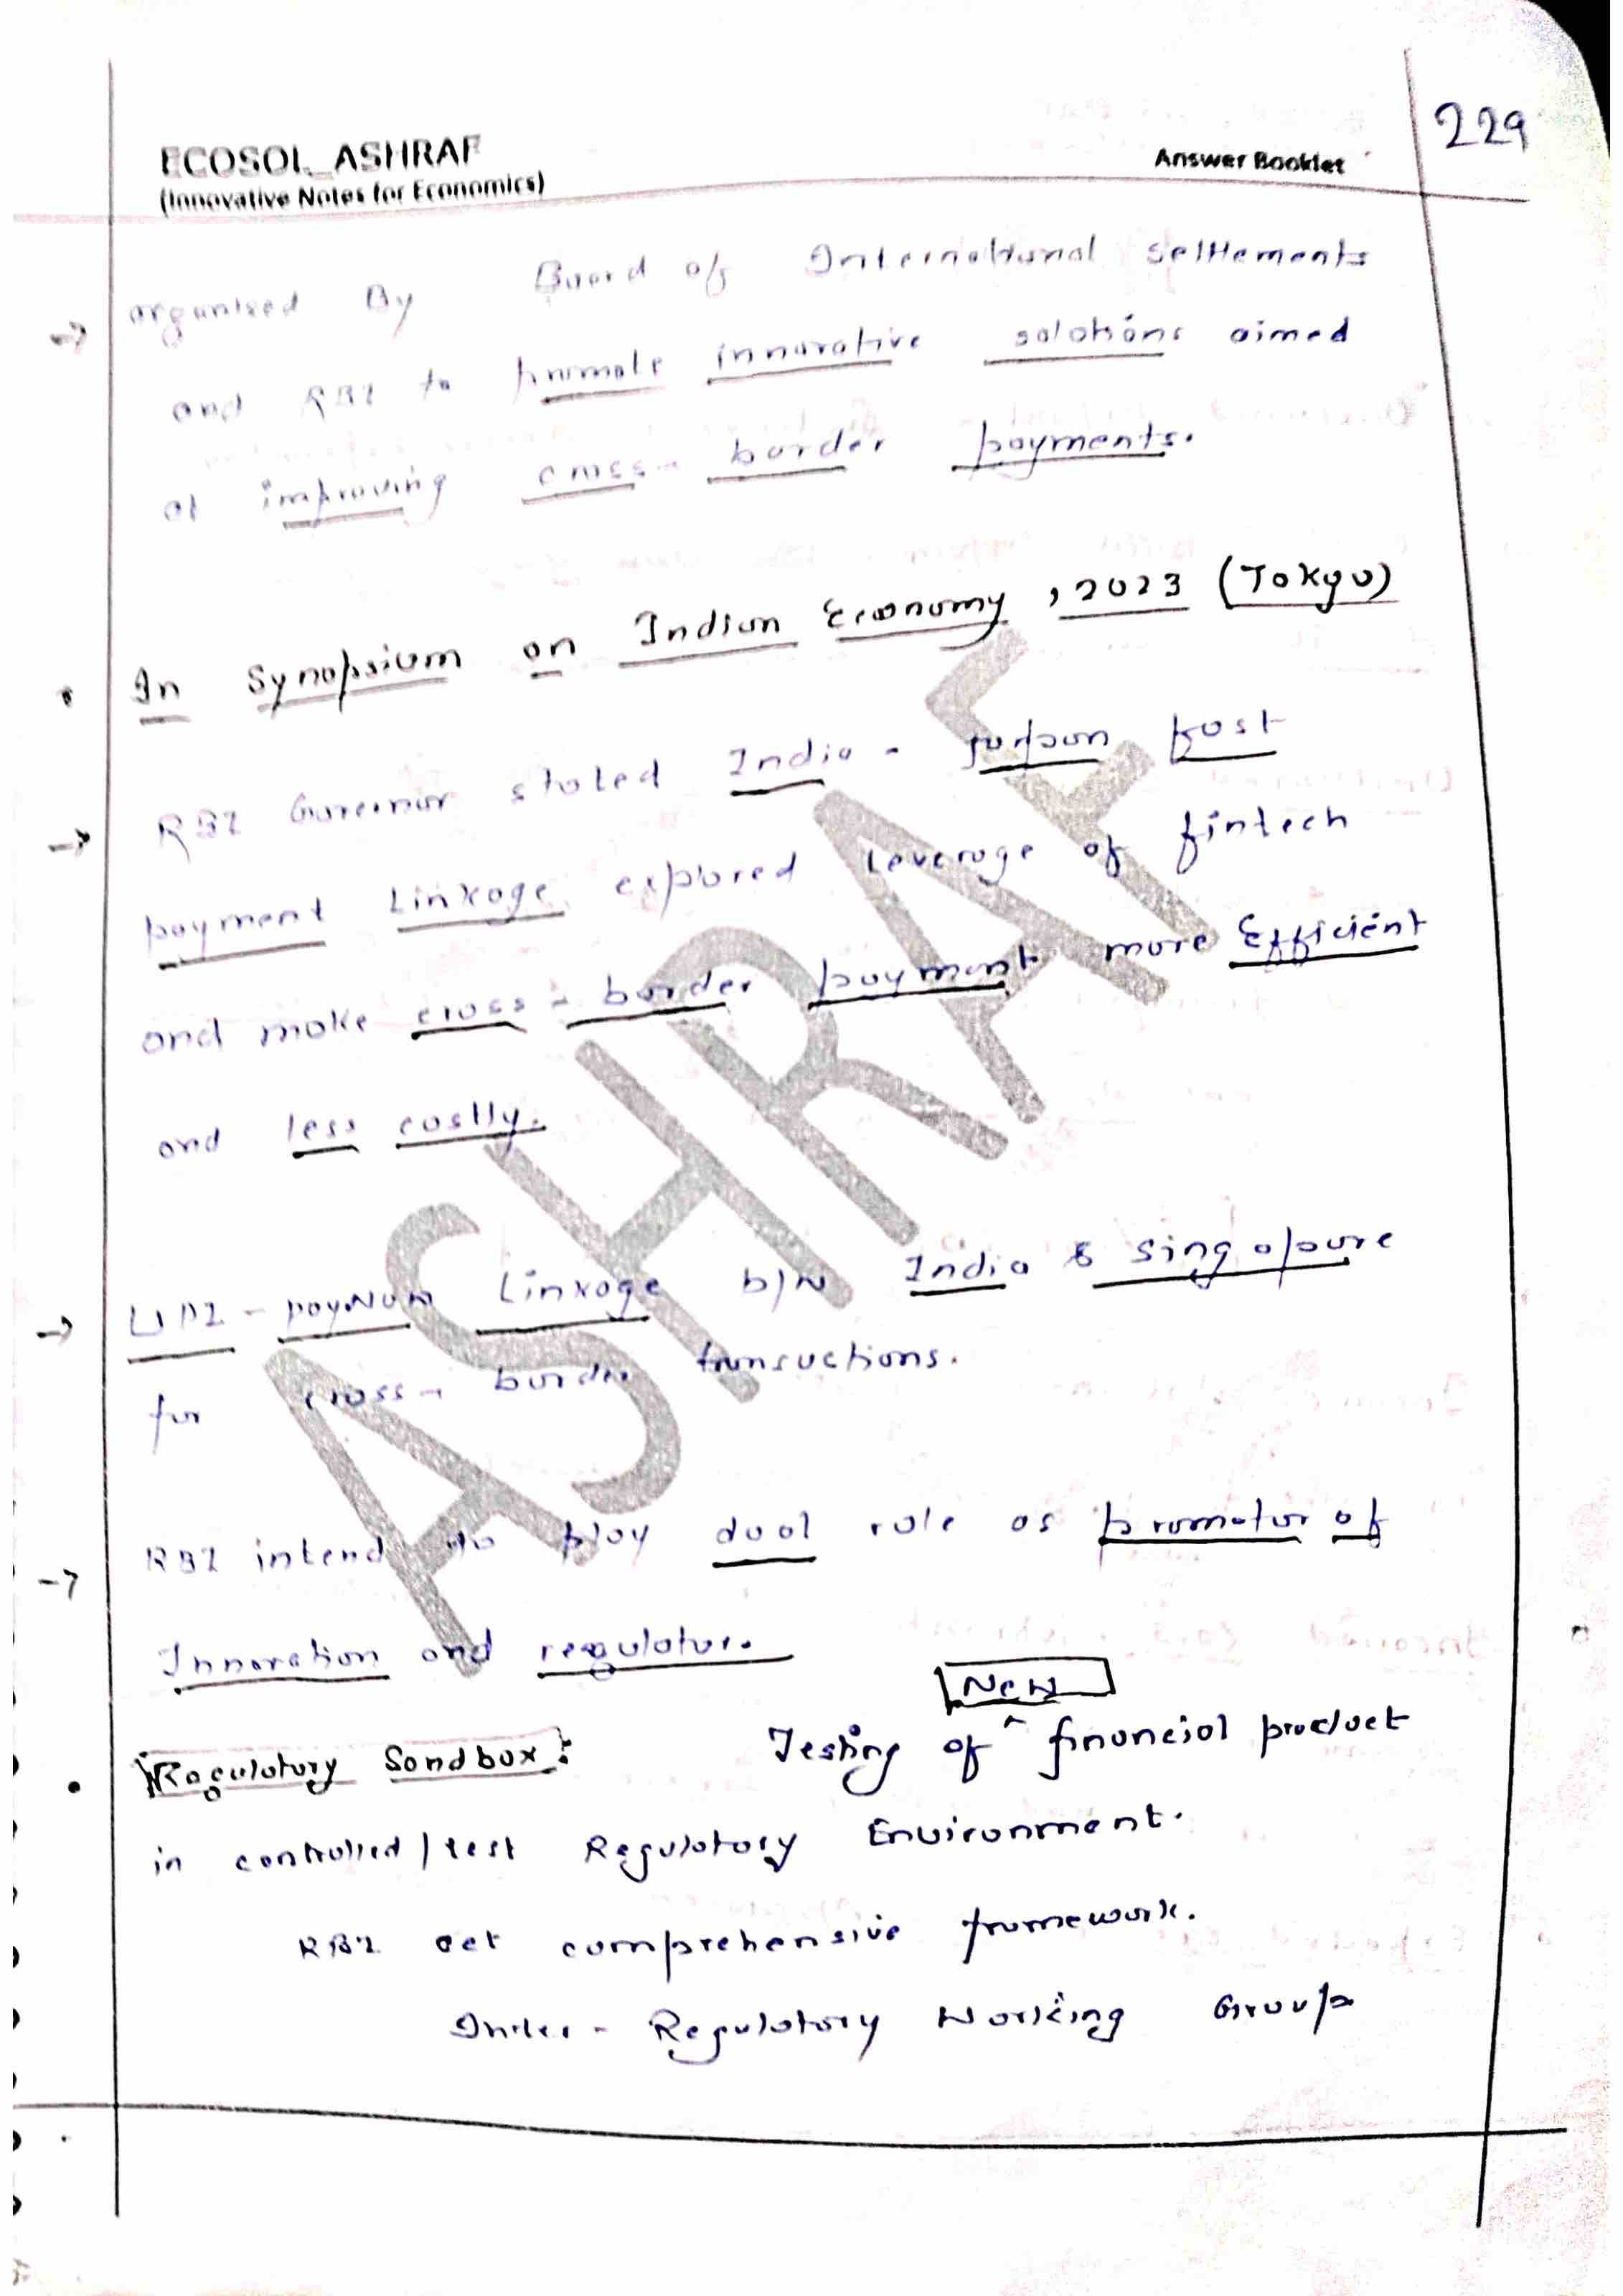 229
ECOSOL_ASHRAF
Answer Booklet
(Innovative Notes for Economics)
→ organised By Board of International Settlements
and RBI to promote innovative solutions aimed
at improving cross - border payments.
• In Synopsium on Indian Economy, 2023 (Tokyo)
→ RBI Governor stated India - Japan fast
payment Linkage explored Leverage of fintech
and make cross - border payment more Efficient
and less costly.
→ UPI - payNow Linkage b/w India & Singapore
for cross - border transactions.
→ RBI intend to play dual role as promotor of
Innovation and regulator.
New
• Regulatory Sandbox: Testing of ^ financial product
in controlled / test Regulatory Environment.
RBI comprehensive framework.
Inter - Regulatory Working Group
ASHRAF